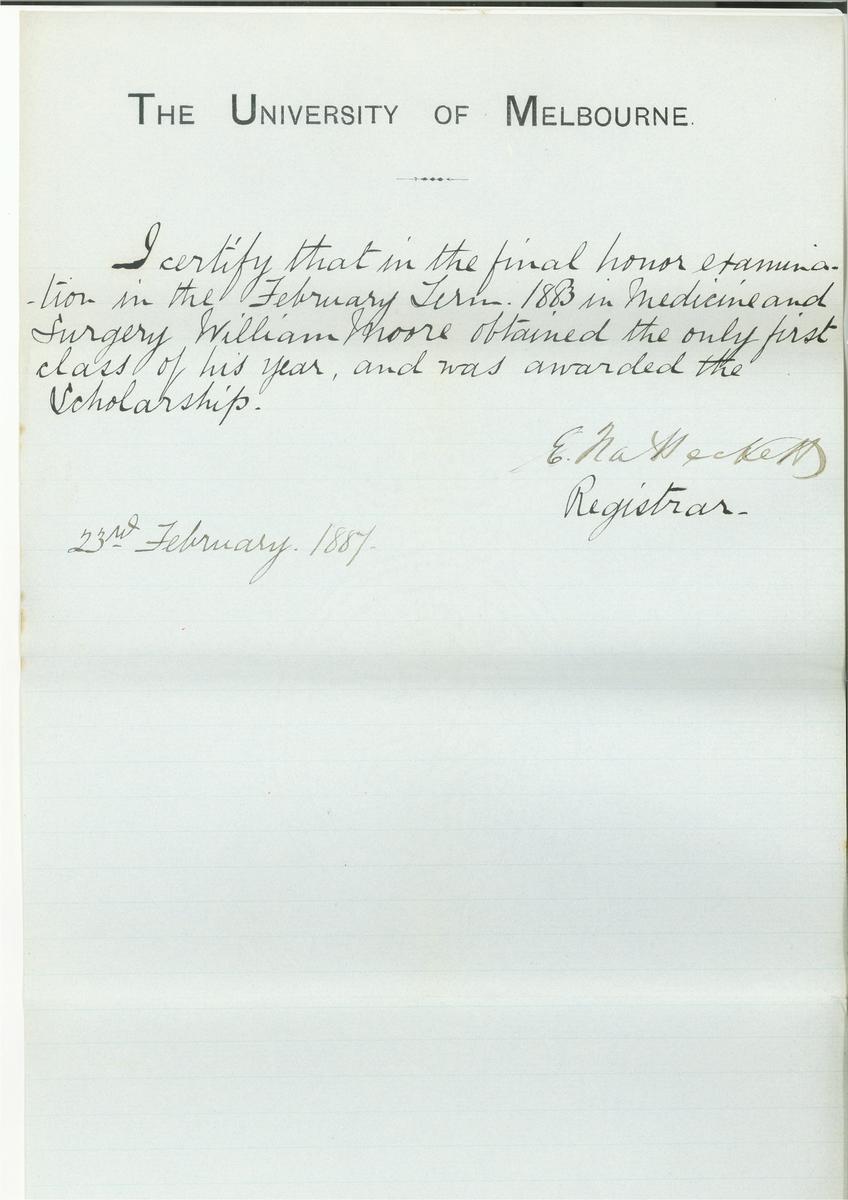 THE UNIVERSITY OF MELBOURNE.
I certify that in the final honor examina-
-tion in the February Term. 1883 in Medicine and
Surgery William Moore obtained the only first
class of his year, and was awarded the
Scholarship.
E.
Registrar-
23rd February. 1887.